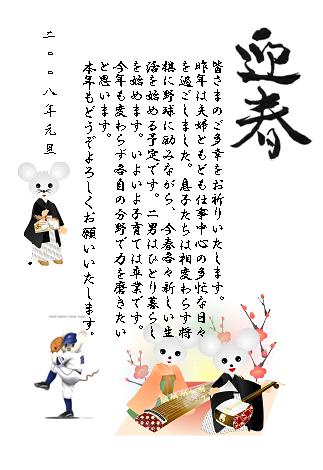 迎春
皆さまのご多幸をお祈りいたします。
昨年は夫婦ともども仕事中心の多忙な日々
を過ごしました。息子たちは相変わらず将
棋に野球に励みながら、今春各々新しい生
活を始める予定です。二男はひとり暮らし
を始めます。いよいよ子育ては卒業です。
今年も変わらず各自の分野で力を磨きたい
と思います。
本年もどうぞよろしくお願いいたします。
二〇〇八年元旦